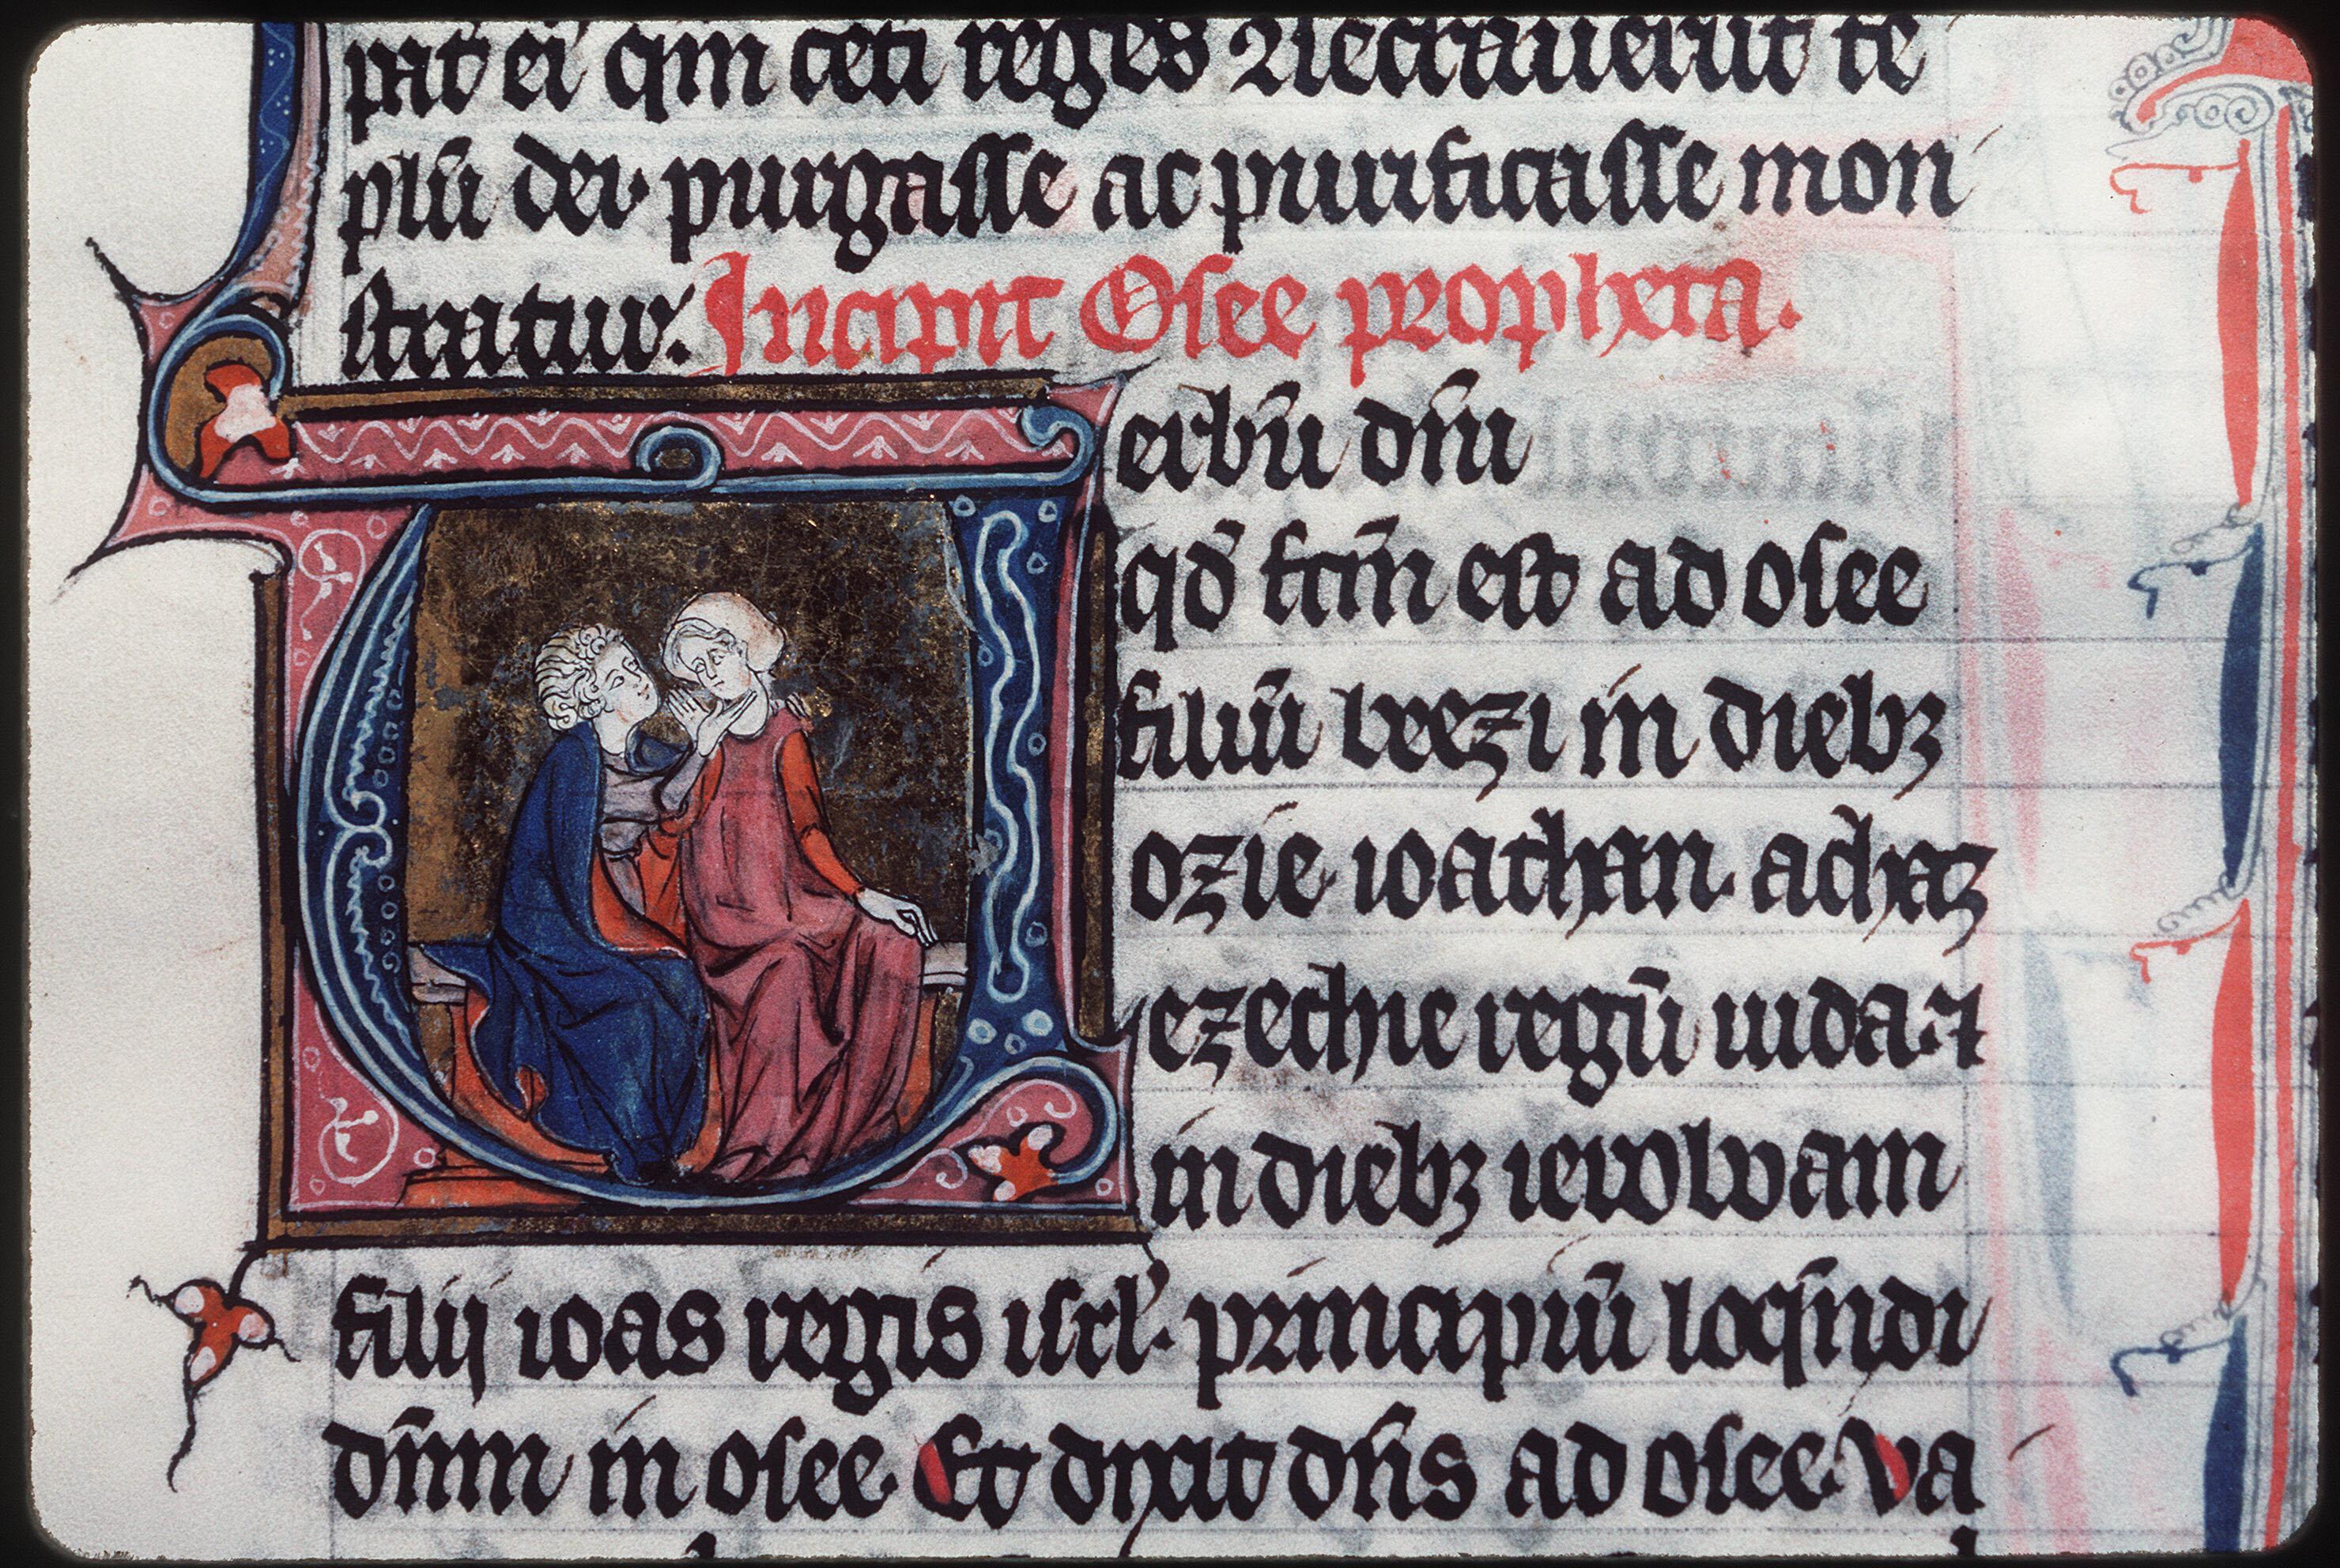 pat᷒ ei qm̄ cet̄i reges ⁊ ictauerūt te
plū dei· purgasse ac purificasse mon
stratur. Incipit Osee propheta.
erbū dn̄i
qd̄ fcm̄ est ad osee
filiū beezi in diebꝫ
ozie· ioathan· achaz
ezechie regū iuda· ⁊
in diebꝫ ieroboam
filij ioas regis isrl̓· principiū loqn̄di
dn̄m in osee· Et dixit dn̄s ad osee· va